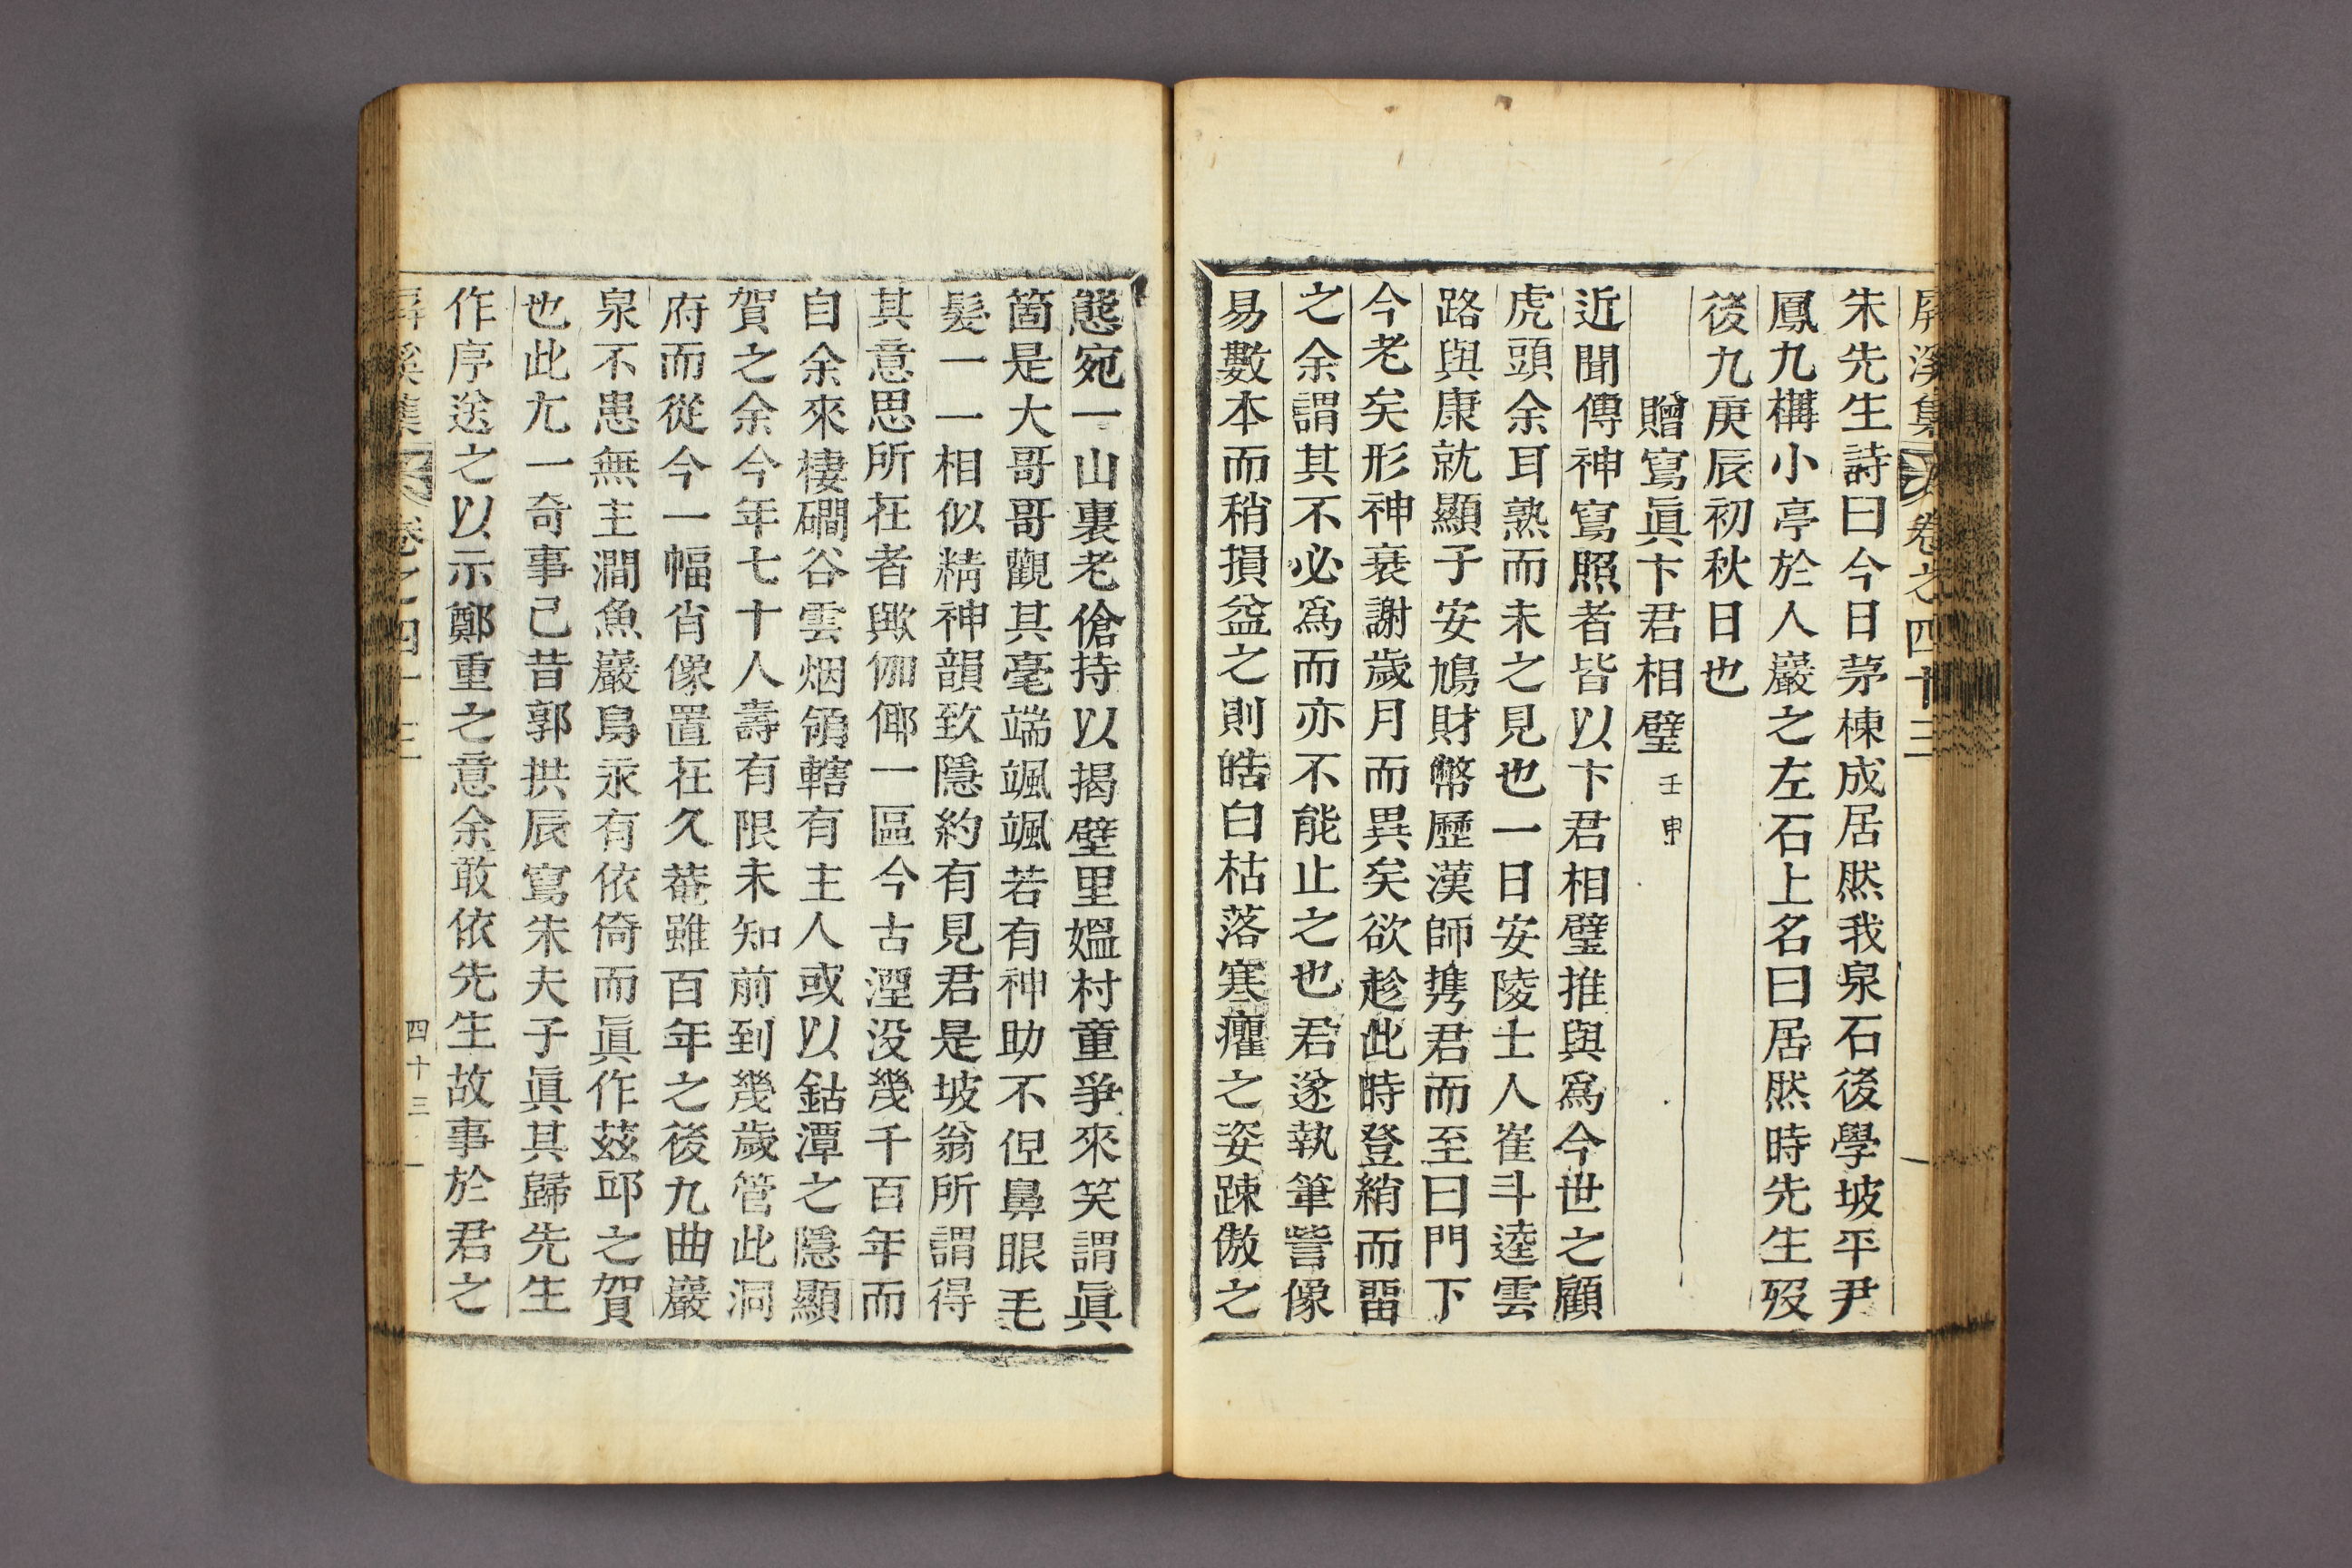 屏溪集 卷之四十三
朱先生詩曰今日茅棟成居然我泉石後學坡平尹
鳳九構小亭於人巖之左石上名曰居然時先生歿
後九庚辰初秋日也
贈寫眞卞君相璧 壬申
近聞傳神寫照者皆以卞君相璧推與爲今世之顧
虎頭余耳熟而未之見也一日安陵士人崔斗逵雲
路與康就顯子安鳩財幣歷漢師携君而至曰門下
今老矣形神衰謝歲月而異矣欲趁此時登綃而留
之余謂其不必爲而亦不能止之也君遂執筆訾像
易數本而稍損益之則皓白枯落寒癯之姿踈傲之
態宛一山裏老傖持以揭壁里媼村童爭來笑謂眞
箇是大哥哥觀其毫端颯颯若有神助不但鼻眼毛
髮一一相似精神韻致隱約有見君是坡翁所謂得
其意思所在者歟伽倻一區今古湮没幾千百年而
自余來棲磵谷雲烟領轄有主人或以鈷潭之隱顯
賀之余今年七十人壽有限未知前到幾歲管此洞
府而從今一幅肖像置在久菴雖百年之後九曲巖
泉不患無主澗魚巖鳥永有依倚而眞作茲邱之賀
也此尤一奇事己昔郭拱辰寫朱夫子眞其歸先生
作序送之以示鄭重之意余敢依先生故事於君之
屏溪集 卷之四十三 四十三